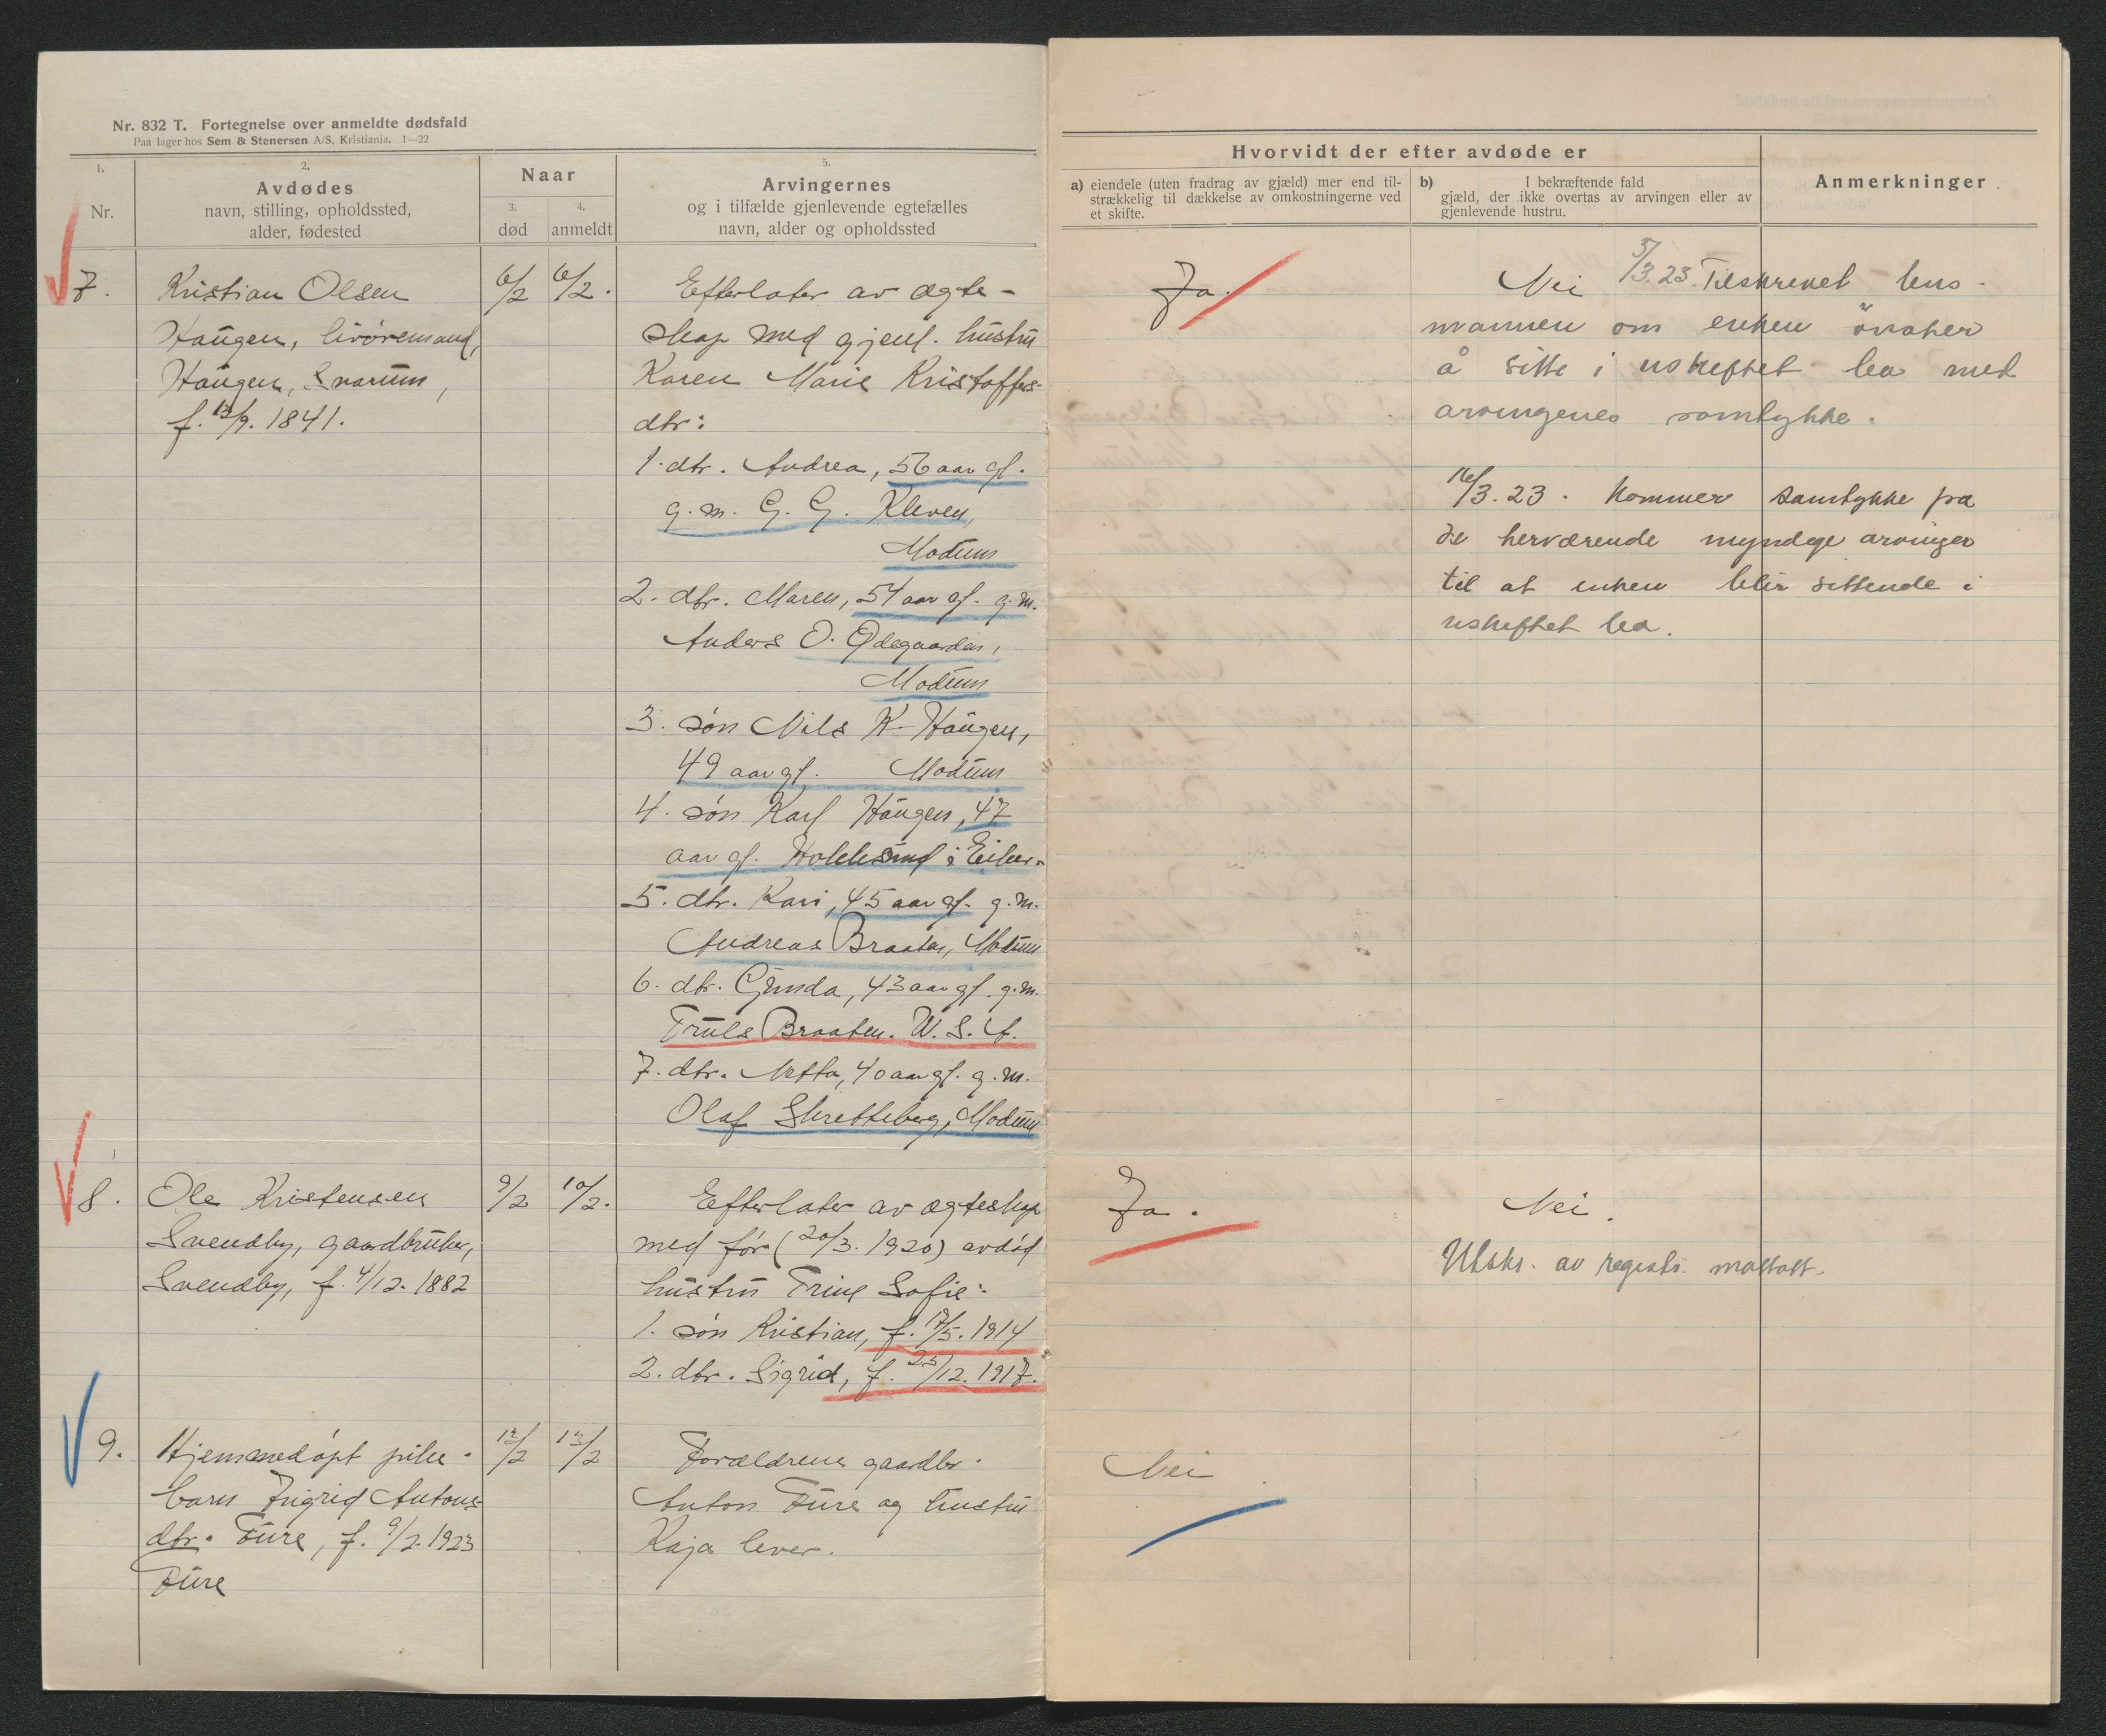 Nr. 832 T. Fortegnelse over anmeldte dødsfald
Paa lager hos Sem & Stenersen A/S, Kristiania. 1—22
1.
Nr.
2.
Avdødes
navn, stilling, opholdssted,
alder, fødested
Naar
3.
død
4.
anmeldt
5.
Arvingernes
og i tilfælde gjenlevende egtefælles
navn, alder og opholdssted
7.
Kristian Olsen
Haugen, livøremand,
Haugen, Snarum,
f. 13/9. 1841.
6/2
6/2.
Efterlater av ægte-
skap med gjenl. hustru
Karen Marie Kristoffers-
dtr:
1. dtr. Andrea, 56 aar gl.
g.m. G. G. Kleven,
Modum
2. dtr. Maren, 54 aar gl. g.m.
Anders O. Ødegaarden,
Modum
3. søn Nils K. Haugen,
49 aar gl. Modum
4. søn Karl Haugen, 47
aar gl. Hokksund i Eiker.
5. dtr. Kari, 45 aar gl. g.m.
Andreas Braaten, Modum
6. dtr. Gunda, 43 aar gl. g.m.
Truls Braaten. U.S.A.
7. dtr. Netta, 40 aar gl. g.m.
Olaf Skretteberg, Modum
8.
Ole Kristensen
Svendby, gaardbruker,
Svendby, f. 4/12. 1882
9/2
10/2.
Efterlater av ægteskap
med før (20/3. 1920) avdød
hustru Trine Sofie:
1. søn Kristian, f. 17/5. 1914
2. dtr. Sigrid, f. 25/12. 1917.
9.
Hjemmedøpt pike-
barn Ingrid Antons-
dtr. Fure, f. 9/2. 1923
Fure
12/2
13/2
Forældrene gaardbr.
Anton Fure og hustru
Kaja lever.
Hvorvidt der efter avdøde er
a) eiendele (uten fradrag av gjæld) mer end til-
strækkelig til dækkelse av omkostningerne ved
et skifte.
b) I bekræftende fald
gjæld, der ikke overtas av arvingen eller av
gjenlevende hustru.
Anmerkninger
Ja.
Nei 5/3.23. Tilskrevet lens-
mannen om enken önsker
å sitte i uskiftet bo med
arvingenes samtykke.
16/3.23. Kommer samtykke fra
de herværende myndige arvinger
til at enken blir sittende i
uskiftet bo.
Ja.
Nei.
Utskr. av registr. mottatt.
Nei